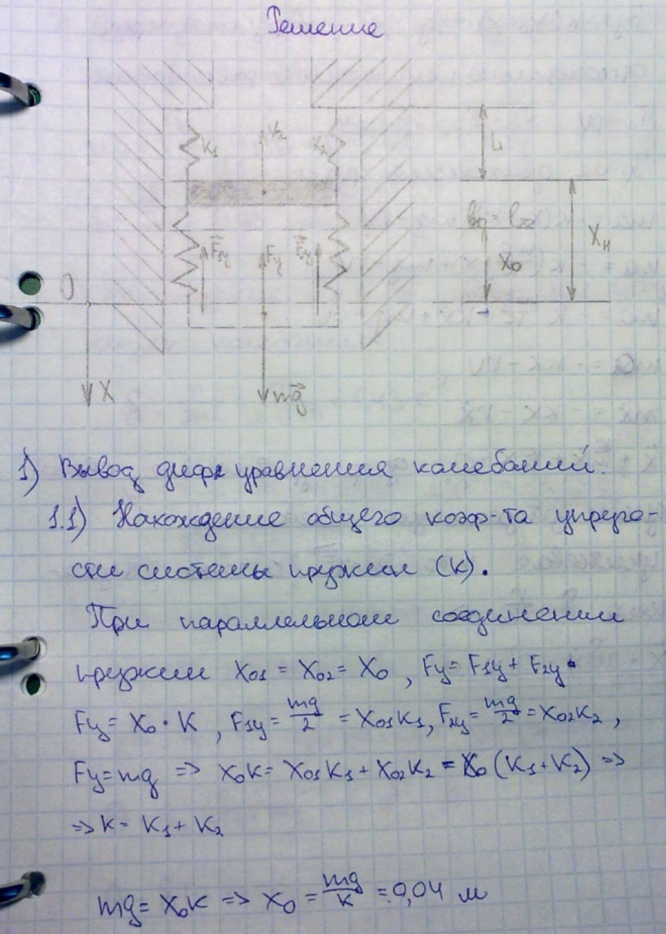 Решение
K₁
V₂
L
X_H
X₀
F₁y Fy
O
X
mg
1) Вывод дифф уравнения колебаний.
1.1) Нахождение общего коэф-та упруго-
сти системы пружин (K).
При параллельном соединении
пружин X₀₁ = X₀₂ = X₀, Fy = F₁y + F₂y.
Fy = X₀ · K, F₁y = mg/2 = X₀₁K₁, F₂y = mg/2 = X₀₂K₂,
Fy = mg => X₀K = X₀₁K₁ + X₀₂K₂ = X₀(K₁ + K₂) =>
=> K = K₁ + K₂
mg = X₀K => X₀ = mg/K = 0,04 м